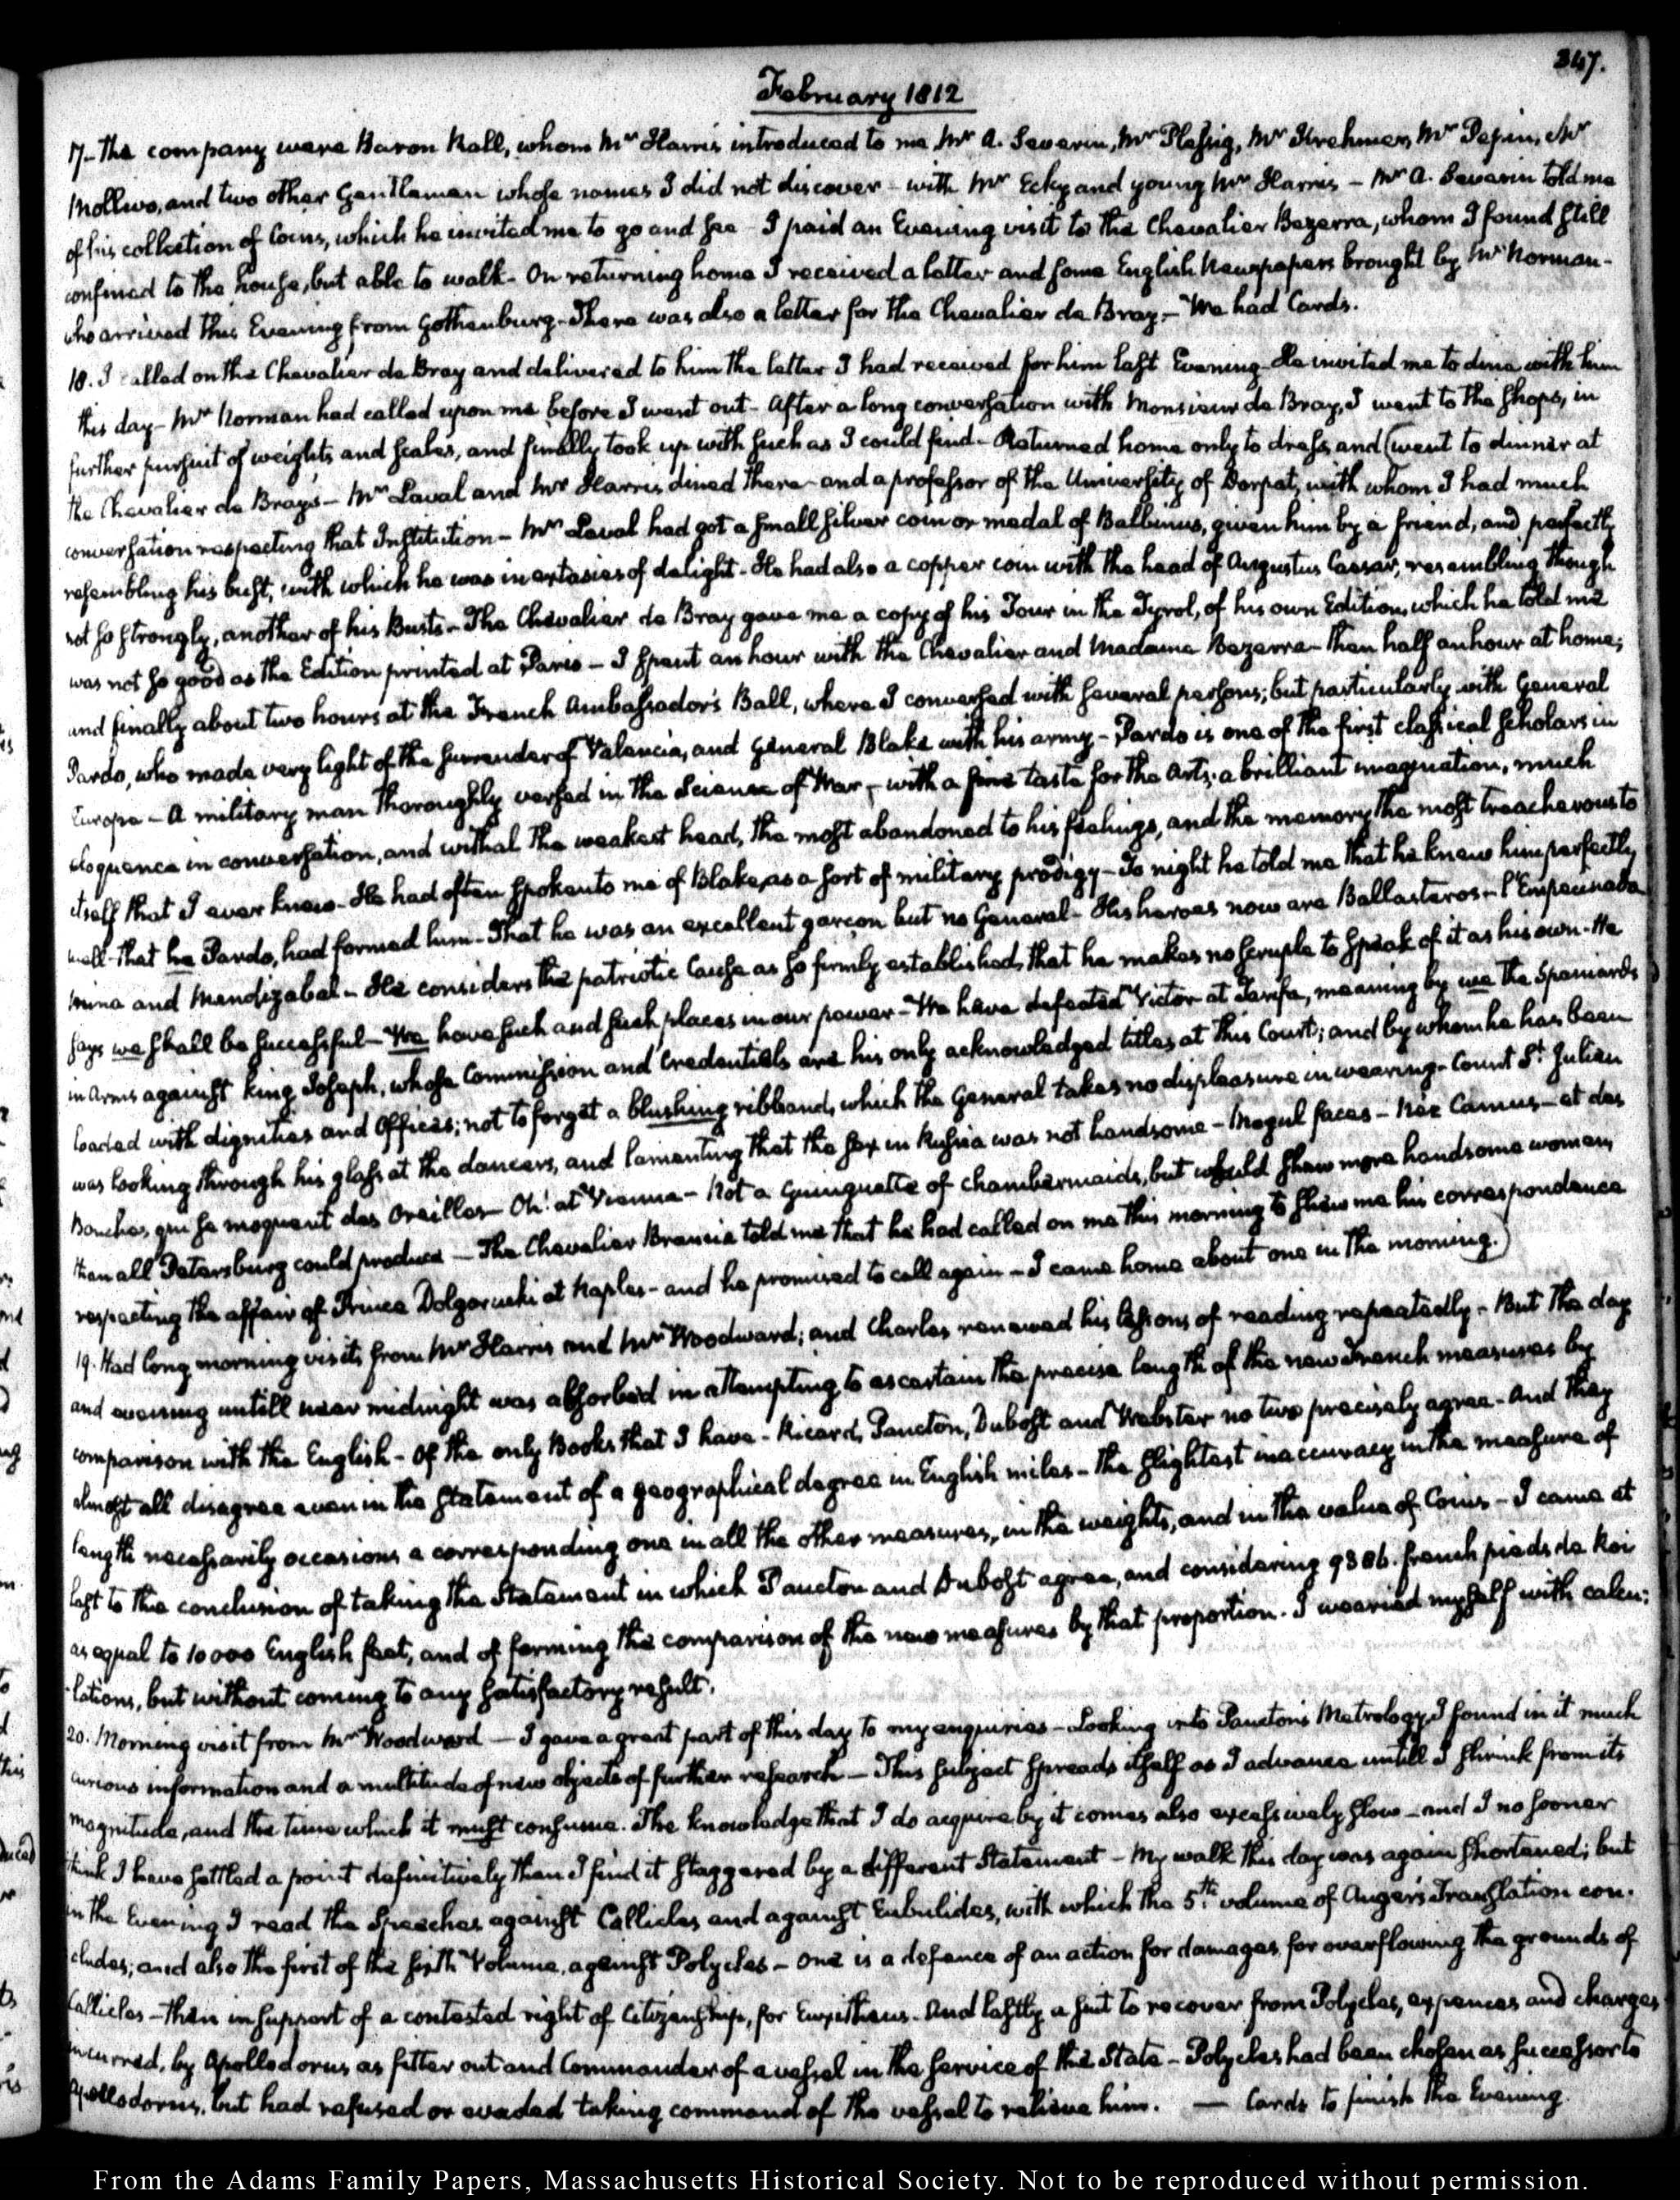 347.
February 1812
17. The company were Baron Rall, whom Mr Harris introduced to me, Mr A. Severin, Mr Plessig, Mr Krehmer, Mr Pepin, Mr
Mollwo, and two other Gentlemen whose names I did not discover – with Mr Ecky and young Mr Harris – Mr A. Severin told me
of his collection of Coins, which he invited me to go and see – I paid an Evening visit to the Chevalier Bezerra, whom I found still
confined to the house, but able to walk – On returning home I received a letter and some English Newspapers brought by Mr Norman –
who arrived this Evening from Gothenburg – There was also a letter for the Chevalier de Bray. – We had Cards.
18. I called on the Chevalier de Bray and delivered to him the letter I had received for him last Evening – He invited me to dine with him
this day – Mr Norman had called upon me before I went out – After a long conversation with Monsieur de Bray, I went to the shops, in
further pursuit of weights and scales, and finally took up with such as I could find – Returned home only to dress and (went to dinner at
the Chevalier de Bray's – Mr Laval and Mr Harris dined there – and a professor of the University of Dorpat, with whom I had much
conversation respecting that Institution – Mr Laval had got a small silver coin or medal of Balbinus, given him by a friend, and perfectly
resembling his bust, with which he was in extasies of delight – He had also a copper coin with the head of Augustus Caesar, resembling though
not so strongly, another of his Busts – The Chevalier de Bray gave me a copy of his Tour in the Tyrol, of his own Edition, which he told me
was not so good as the Edition printed at Paris – I spent an hour with the Chevalier and Madame Bezerra – then half an hour at home;
and finally about two hours at the French Ambassador's Ball, where I conversed with several persons; but particularly with General
Pardo, who made very light of the surrender of Valencia, and General Blake with his army – Pardo is one of the first classical scholars in
Europe – A military man thoroughly versed in the Science of War, – with a fine taste for the Arts, a brilliant imagination, much
eloquence in conversation, and withal the weakest head, the most abandoned to his feelings, and the memory the most treacherous to
itself that I ever knew – He had often spoken to me of Blake, as a sort of military prodigy – To night he told me that he knew him perfectly
well – that he Pardo, had formed him – That he was an excellent garcon but no General – His heroes now are Ballasteros – l'Empecinado
Mina and Mendizabal – He considers the patriotic Cause as so firmly established, that he makes no scruple to speak of it as his own – He
says we shall be successful – We have such and such places in our power – We have defeated Victor at Tarifa, meaning by we the Spaniards
in Arms against King Joseph, whose Commission and Credentials are his only acknowledged titles at this Court; and by whom he has been
loaded with dignities and Offices; not to forget a blushing ribband, which the General takes no displeasure in wearing – Count St. Julien
was looking through his glass at the dancers, and lamenting that the sex in Russia was not handsome – Mogul faces – Nez Camus – et des
Bouches, qui se moquent des Oreilles – Oh! at Vienna – Not a Guinguette of chambermaids, but would shew more handsome women,
than all Petersburg could produce – The Chevalier Brancia told me that he had called on me this morning to shew me his correspondence
respecting the affair of Prince Dolgorucki at Naples – and he promised to call again – I came home about one in the morning.)
19. Had long morning visits from Mr Harris and Mr Woodward; and Charles renewed his lessons of reading repeatedly – But the day
and evening untill near midnight was absorbed in attempting to ascertain the precise length of the new French measures by
comparison with the English – Of the only Books that I have – Ricard, Paucton, Dubost and Webster no two precisely agree – And they
almost all disagree even in the statement of a geographical degree in English miles – The slightest inaccuracy in the measure of
length necessarily occasions a corresponding one in all the other measures, in the weights, and in the value of Coins – I came at
last to the conclusion of taking the Statement in which Paucton and Dubost agree, and considering 9386. french pieds de Roi
as equal to 10000 English feet, and of forming the comparison of the new measures by that proportion. I wearied myself with calcu:
:lations, but without coming to any satisfactory result.
20. Morning visit from Mr Woodward – I gave a great part of this day to my enquiries – Looking into Paucton's Metrology I found in it much
curious information and a multitude of new objects of further research – This subject spreads itself as I advance untill I shrink from its
magnitude, and the time which it must consume. The knowledge that I do acquire by it comes also excessively slow – and I no sooner
think I have settled a point definitively than I find it staggered by a different Statement – My walk this day was again shortened; but
in the Evening I read the Speeches against Callicles and against Eubulides, with which the 5th. volume of Auger's Translation con.
cludes; and also the first of the sixth Volume, against Polycles – one is a defence of an action for damages for overflowing the grounds of
Callicles – then in support of a contested right of Citizenship, for Euxitheus. And lastly a suit to recover from Polycles, expences and charges
incurred, by Apollodorus as fitter out and Commander of a vessel in the service of the State – Polycles had been chosen as successor to
Apollodorus, but had refused or evaded taking command of the vessel to relieve him. — Cards to finish the Evening.
From the Adams Family Papers, Massachusetts Historical Society. Not to be reproduced without permission.